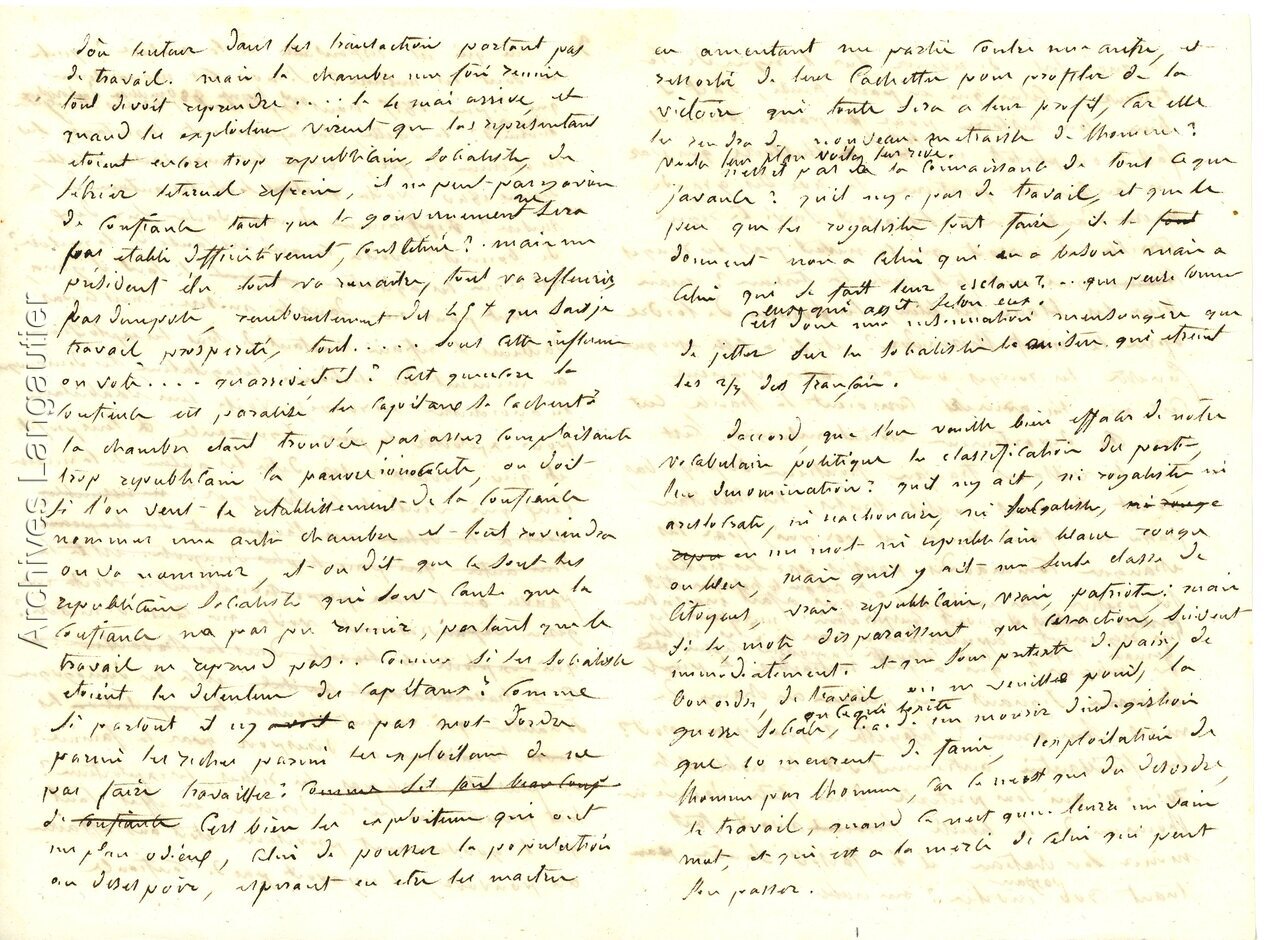 d'ou lenteur dans les transaction partant pas
de travail. mais la chambre une fois reunie
tout devoit reprendre .... le 4 mai arrive, et
quand les exploiteur virent que les représentant
etoient encore trop republicain, socialiste, de
février leternel refrain, il ne peut pas y avoir
de confiance tant que le gouvernement ne sera
pas etabli difficitivement, constitué? mais un
président élu tout va renaitre, tout va refleurir
pas dimpots, remboursement des 45 c. que sais je
travail, prosperité, tout..... sous cette influence
on vote .... quarrive t'il? C'est quencore la
confiance est paralisé les capitaux se cachent?
la chambre etant trouvée pas assez complaisante
trop republicain la pauvre innocente, on doit
si l'on veut le retablissement de la confiance
nommer une autre chambre et tout reviendra
on va nommer, et on dit que ce sont les
republicain socialiste qui sont cause que la
confiance n'a pas pu revenir, partant que le
travail ne reprend pas.. Comme si les socialiste
etoient les detenteur des capitaux? Comme
si partout il n'y avoit a pas mot dordre
parmi les riches parmi les exploiteur de ne
pas faire travailler? Comme s'il faut beaucoup
de confiance C'est bien les exploiteur qui ont
un plan odieux, celui de pousser la population
au desespoir, esperant en etre les maitre
en ameutant une partie contre une autre, et
ressortir de leur cachette pour profiter de la
victoire qui toute sera a leur profit, car elle
les rendra de nouveau maitre de lhomme?
voila leur plan voila leur rêve.
n'est il pas a la connaissance de tous ce que
j'avance? quil ny a pas de travail, et que le
peu que les royaliste font faire, il le font
donnent non a celui qui en a besoin mais a
celui qui se fait leur esclave?.. que pense comme
eux qui agit selon eux.
C'est donc une insinuation mensongère que
de jetter sur les socialiste la misère qui etreint
les 2/3 des français.
Daccord que l'on veuille bien effacer de notre
vocabulaire politique la classification des parti,
leur denomination? quil ny ait, ni royaliste ni
aristocrate, ni reactionaire, ni socialiste, ni rouge
en un mot ni republicain blanc rouge
ou bleu, mais quil y ait une seule classe de
citoyens, vrais republicain, vrais patriote; mais
si les mots disparaissent, que les action, suivent
immédiatement. et que sous pretexte de paix, de
bon ordre, de travail on ne veuille point, la
guerre sociale, ou ce qui existe
c.a.d. un mourir dindigestion
que 10 meurent de faim, lexploitation de
lhomme par lhomme, car ce n'est que du desordre,
le travail, quand ce n'est quun leurre un vain
mot, et qui est a la merci de celui qui peut
s'en passer.
Archives Langautier